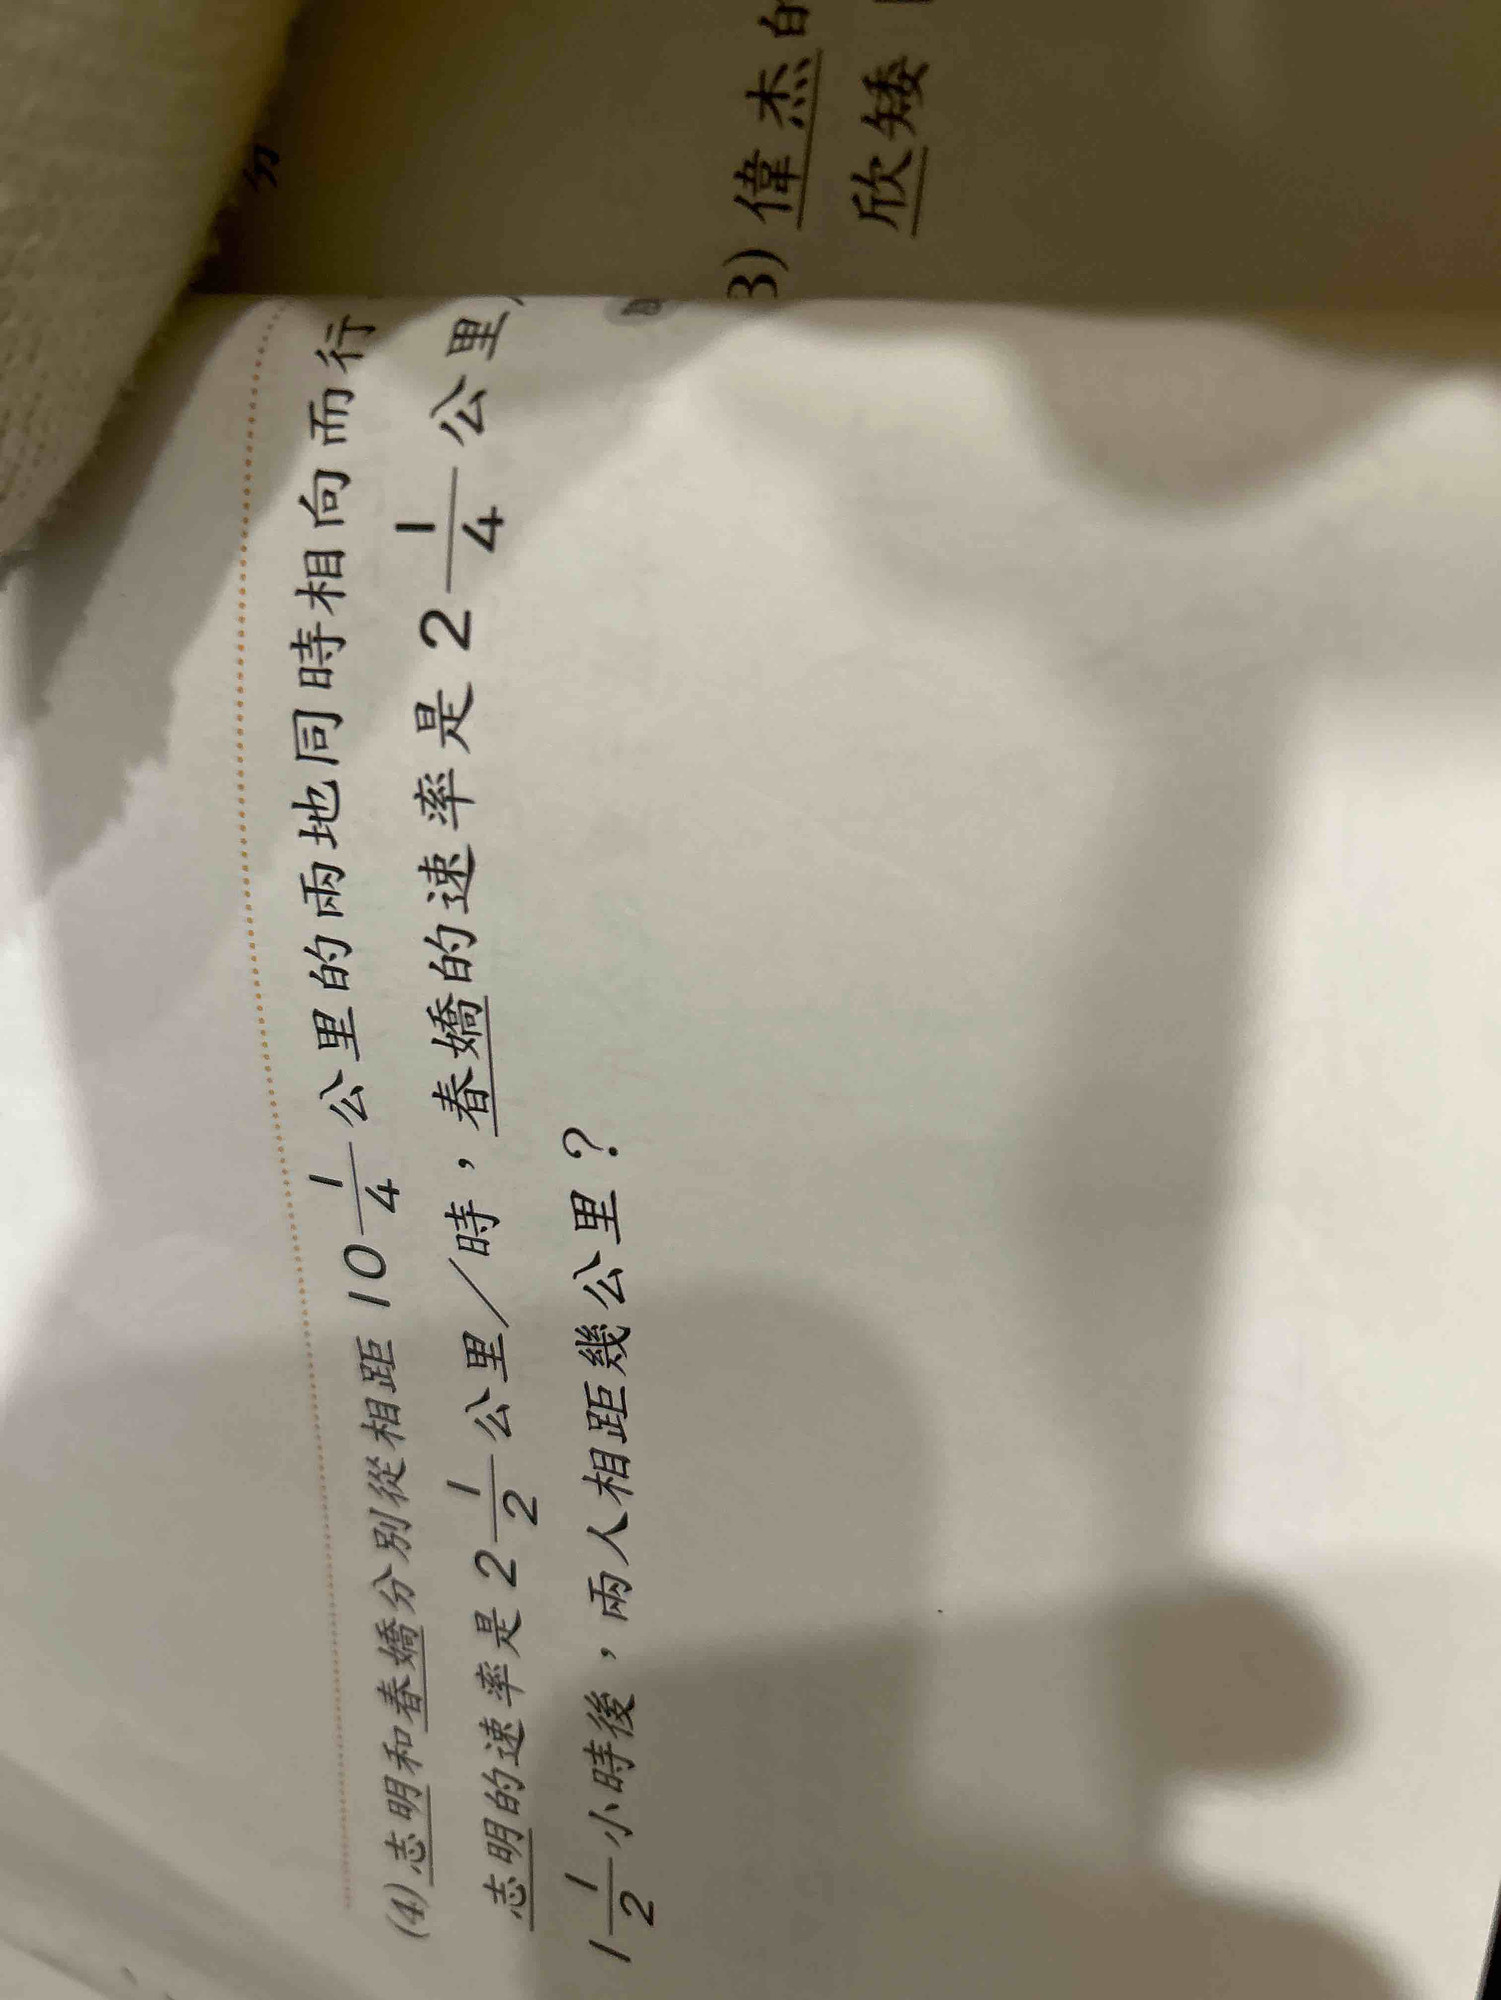 (4)志明和春嬌分別從相距10 1/4公里的兩地同時相向而行
志明的速率是2 1/2公里/時，春嬌的速率是2 1/4公里
1 1/2小時後，兩人相距幾公里？
分
3)偉杰的
欣矮